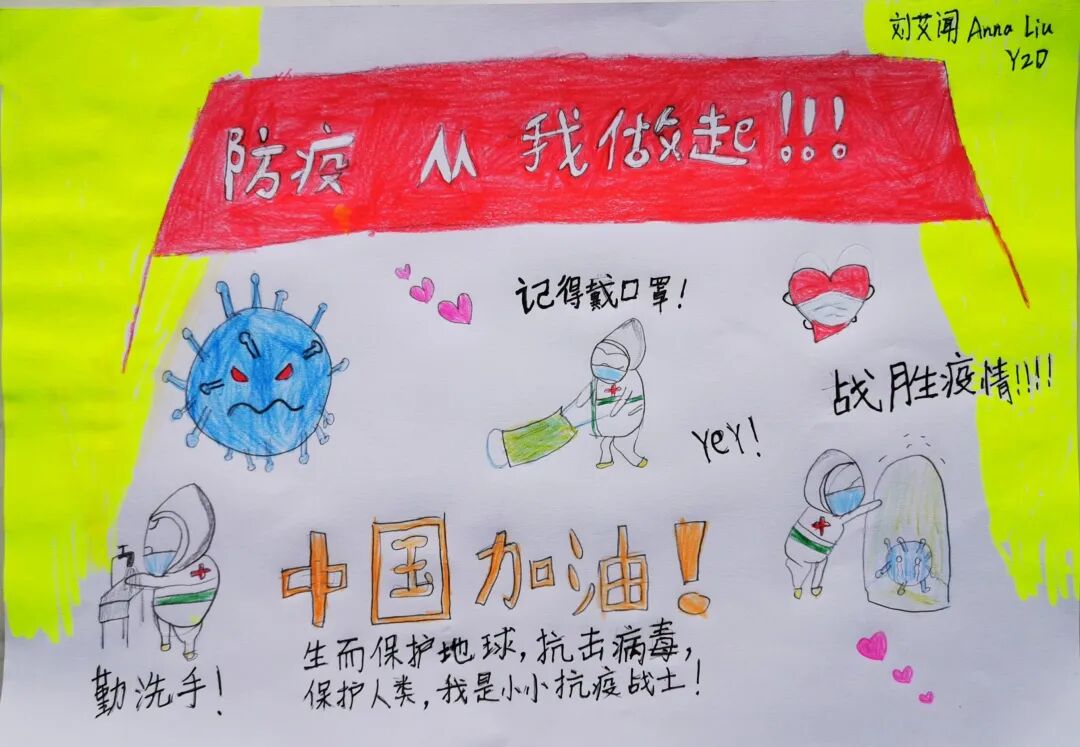 刘艾闻 Anna Liu
Y2D
防疫 从 我做起!!!
记得戴口罩!
战胜疫情!!!!
YeY!
中国加油!
生而保护地球,抗击病毒,
保护人类,我是小小抗疫战士!
勤洗手!